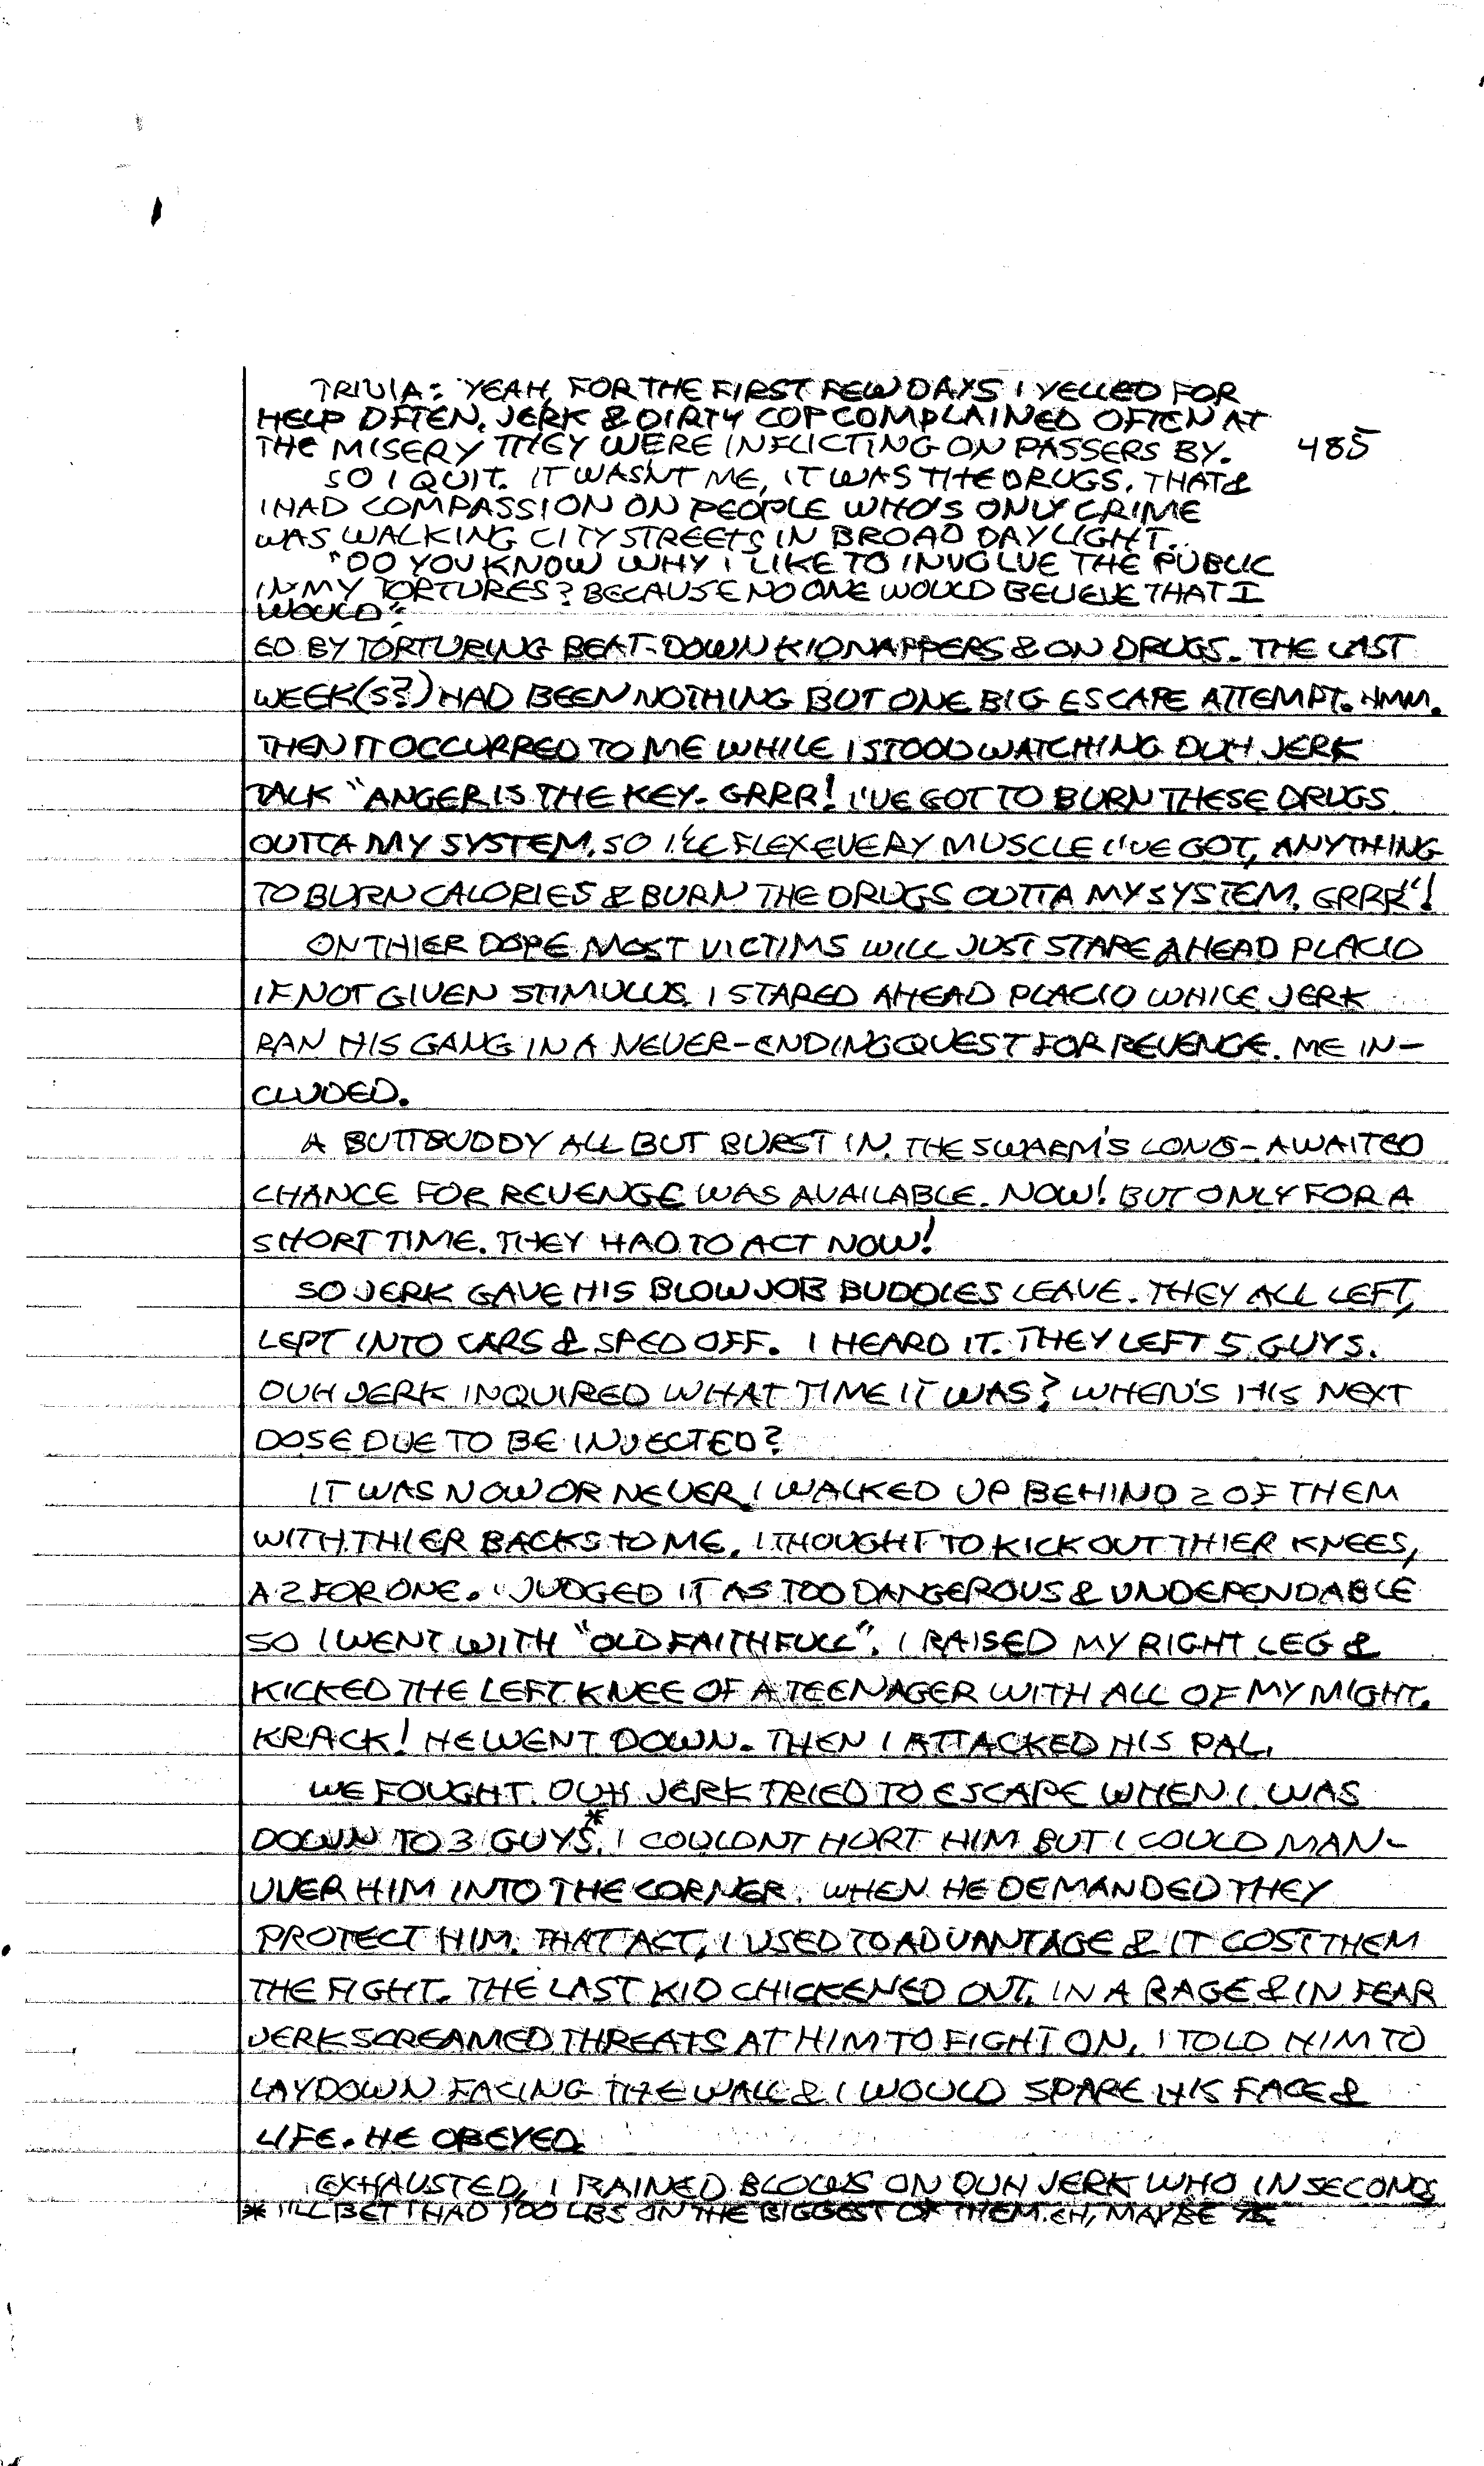 TRIVIA: YEAH, FOR THE FIRST FEW DAYS I YELLED FOR
HELP OFTEN. JERK & DIRTY COP COMPLAINED OFTEN AT
THE MISERY THEY WERE INFLICTING ON PASSERS BY.
485
SO I QUIT. IT WASN'T ME, IT WAS THE DRUGS. THAT &
I HAD COMPASSION ON PEOPLE WHO'S ONLY CRIME
WAS WALKING CITY STREETS IN BROAD DAYLIGHT.
"DO YOU KNOW WHY I LIKE TO INVOLVE THE PUBLIC
IN MY TORTURES? BECAUSE NO ONE WOULD BELIEVE THAT I
WOULD".
ED BY TORTURING BEAT-DOWN KIDNAPPERS & ON DRUGS. THE LAST
WEEK(S?) HAD BEEN NOTHING BUT ONE BIG ESCAPE ATTEMPT. HMM.
THEN IT OCCURRED TO ME WHILE I STOOD WATCHING DUH JERK
TALK "ANGER IS THE KEY. GRRR! I'VE GOT TO BURN THESE DRUGS
OUTTA MY SYSTEM. SO I'LL FLEX EVERY MUSCLE I'VE GOT, ANYTHING
TO BURN CALORIES & BURN THE DRUGS OUTTA MY SYSTEM. GRRR"!
ON THIER DOPE MOST VICTIMS WILL JUST STARE AHEAD PLACID
IF NOT GIVEN STIMULUS. I STARED AHEAD PLACID WHILE JERK
RAN HIS GANG IN A NEVER-ENDING QUEST FOR REVENGE. ME IN-
CLUDED.
A BUTTBUDDY ALL BUT BURST IN. THE SWARM'S LONG-AWAITED
CHANCE FOR REVENGE WAS AVAILABLE. NOW! BUT ONLY FOR A
SHORT TIME. THEY HAD TO ACT NOW!
SO JERK GAVE HIS BLOWJOB BUDDIES LEAVE. THEY ALL LEFT,
LEPT INTO CARS & SPED OFF. I HEARD IT. THEY LEFT 5 GUYS.
DUH JERK INQUIRED WHAT TIME IT WAS? WHEN'S HIS NEXT
DOSE DUE TO BE INJECTED?
IT WAS NOW OR NEVER. I WALKED UP BEHIND 2 OF THEM
WITH THIER BACKS TO ME. I THOUGHT TO KICK OUT THIER KNEES,
A 2 FOR ONE. I JUDGED IT AS TOO DANGEROUS & UNDEPENDABLE
SO I WENT WITH "OLD FAITHFULL". I RAISED MY RIGHT LEG &
KICKED THE LEFT KNEE OF A TEENAGER WITH ALL OF MY MIGHT.
KRACK! HE WENT DOWN. THEN I ATTACKED HIS PAL.
WE FOUGHT. DUH JERK TRIED TO ESCAPE WHEN I WAS
DOWN TO 3 GUYS.* I COULDNT HURT HIM BUT I COULD MAN-
UVER HIM INTO THE CORNER. WHEN HE DEMANDED THEY
PROTECT HIM. THAT ACT, I USED TO ADVANTAGE & IT COST THEM
THE FIGHT. THE LAST KID CHICKENED OUT. IN A RAGE & IN FEAR
JERK SCREAMED THREATS AT HIM TO FIGHT ON. I TOLD HIM TO
LAY DOWN FACING THE WALL & I WOULD SPARE HIS FACE &
LIFE. HE OBEYED.
EXHAUSTED, I RAINED BLOWS ON DUH JERK WHO IN SECONDS
* I'LL BET I HAD 100 LBS ON THE BIGGEST OF THEM. EH, MAYBE 75.